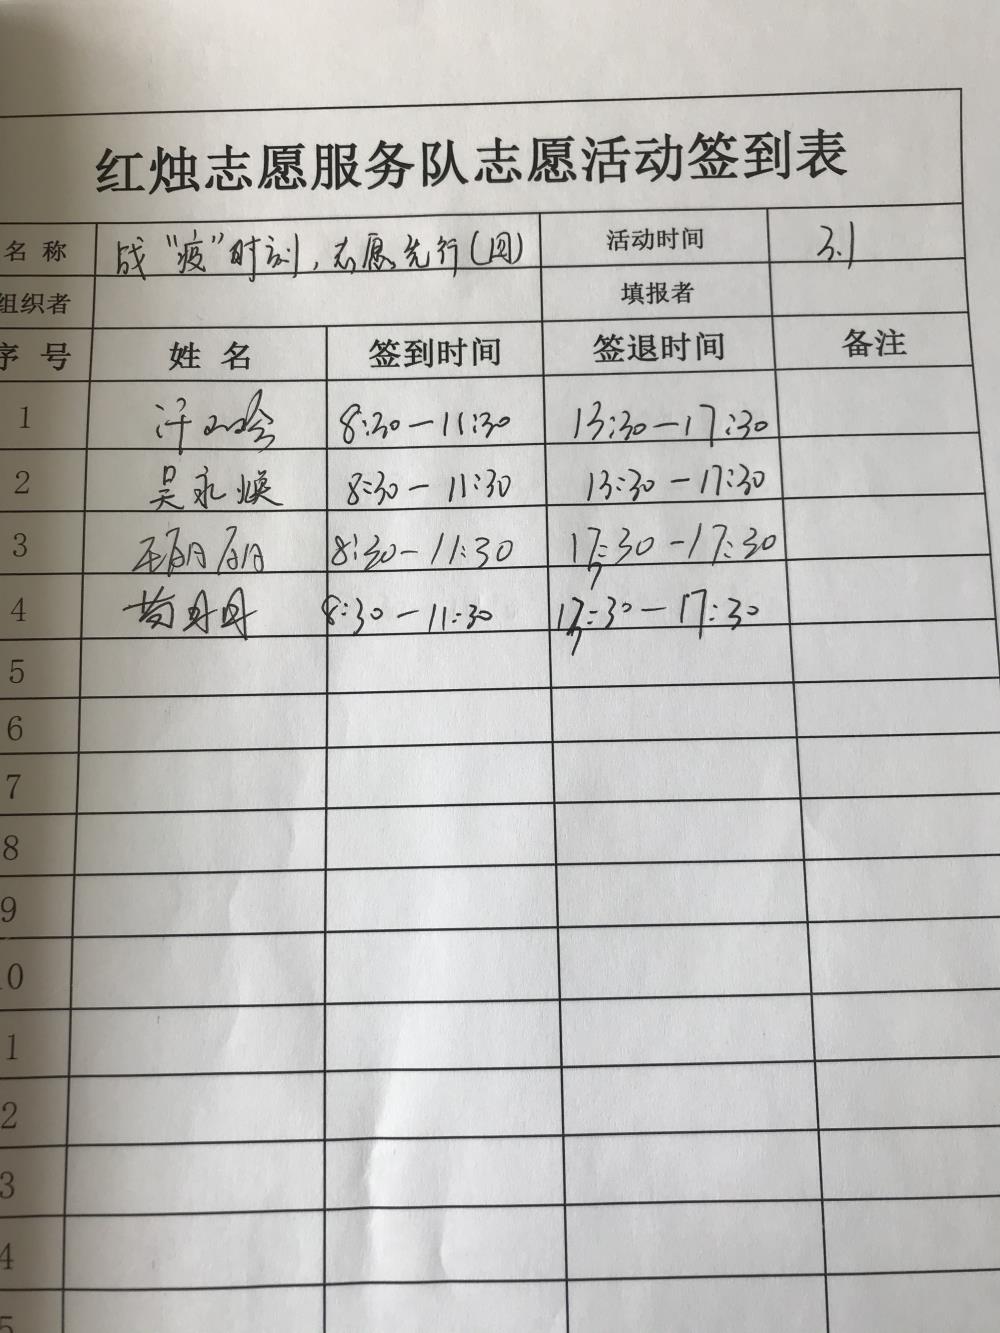 红烛志愿服务队志愿活动签到表
名 称 战“疫”时刻，志愿先行（四） 活动时间 3.1
组织者 填报者
序 号 姓 名 签到时间 签退时间 备注
1 8:30—11:30 13:30—17:30
2 吴永焕 8:30—11:30 13:30—17:30
3 8:30—11:30 :30—17:30
4 黄丹丹 8:30—11:30 :30—17:30
5
6
7
8
9
10
1
2
3
4
5